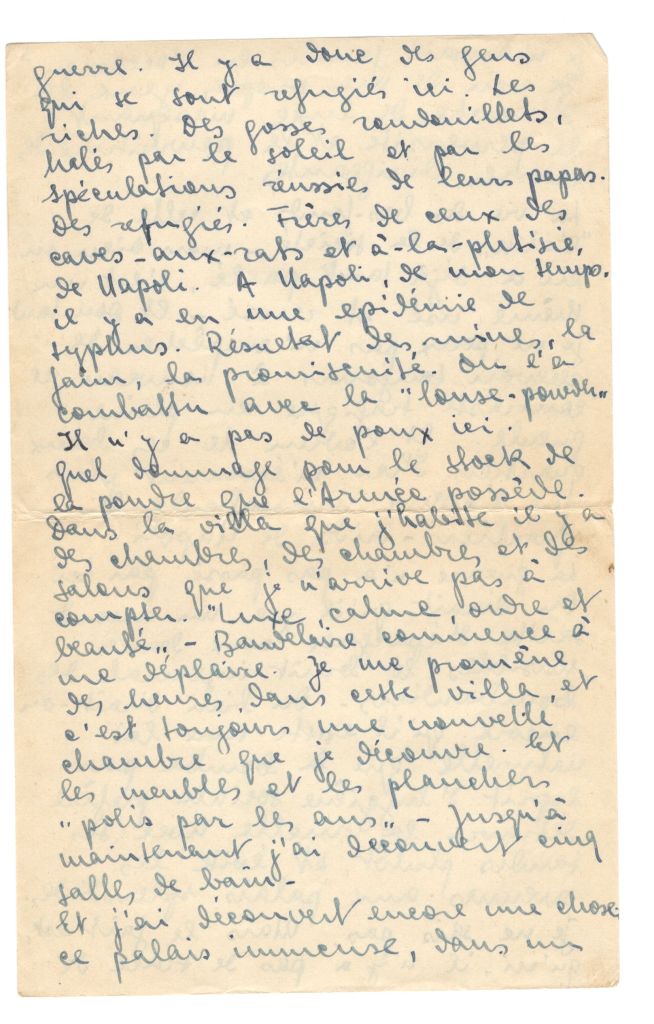 guerre. Il y a donc des gens
qui se sont refugiés ici. Les
riches. Des gosses rondouillets,
halés par le soleil et par les
spéculations réussies de leurs papas.
Des refugiés. Frères de ceux des
caves-aux-rats et à-la-phtisie,
de Napoli. A Napoli, de mon temps.
il y a eu une epidémie de
typhus. Résultat des mines, la
faim, la promiscuité. On l'a
combattu avec la "louse-powder"
Il n'y a pas de poux ici.
Quel dommage pour le stock de
la poudre que l'Armée possède.
Dans la villa que j'habite il y a
des chambres, des chambres et des
salons que je n'arrive pas à
compter. "Luxe, calme ordre et
beauté" - Baudelaire commence à
me déplaire. Je me promène
des heures dans cette villa, et
c'est toujours une nouvelle
chambre que je découvre. Et
les meubles et les planchers
"polis par les ans" - Jusqu'à
maintenant j'ai découvert cinq
salles de bain.
Et j'ai découvert encore une chose:
ce palais immense, dans un